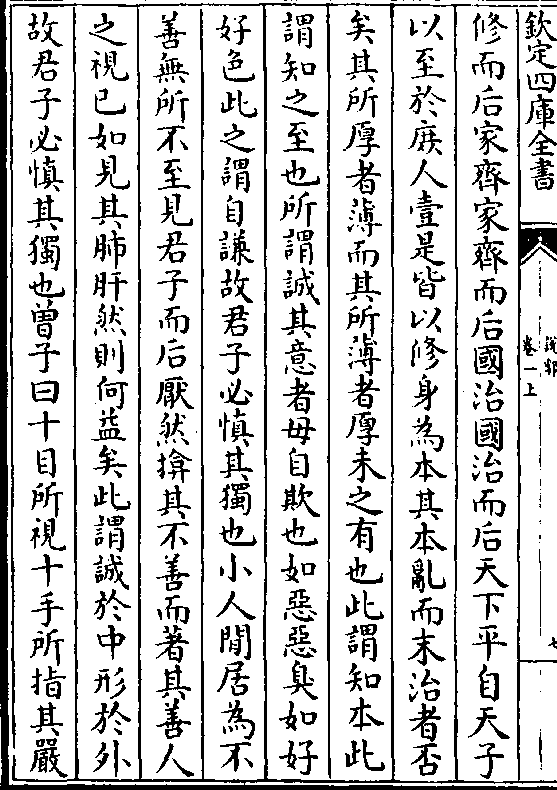 欽定四庫全書
說郛
卷一上
七
修而后家齊家齊而后國治國治而后天下平自天子
以至於庶人壹是皆以修身為本其本亂而末治者否
矣其所厚者薄而其所薄者厚未之有也此謂知本此
謂知之至也所謂誠其意者毋自欺也如惡惡臭如好
好色此之謂自謙故君子必慎其獨也小人閒居為不
善無所不至見君子而后厭然揜其不善而著其善人
之視已如見其肺肝然則何益矣此謂誠於中形於外
故君子必慎其獨也曽子曰十目所視十手所指其嚴